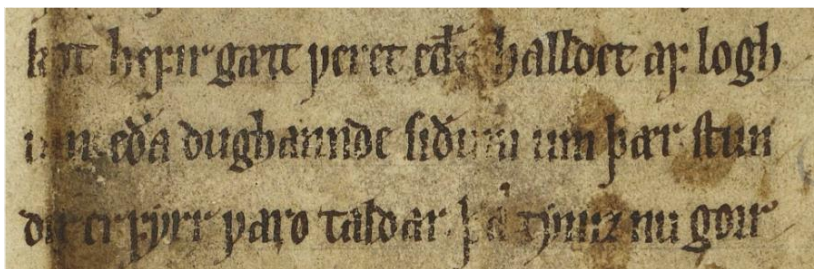 hefir gætt veret eða halldet af logh
eða dughannde siðum um þær stun
dir er fyrr varo taldar. þa tyniz nu gorr